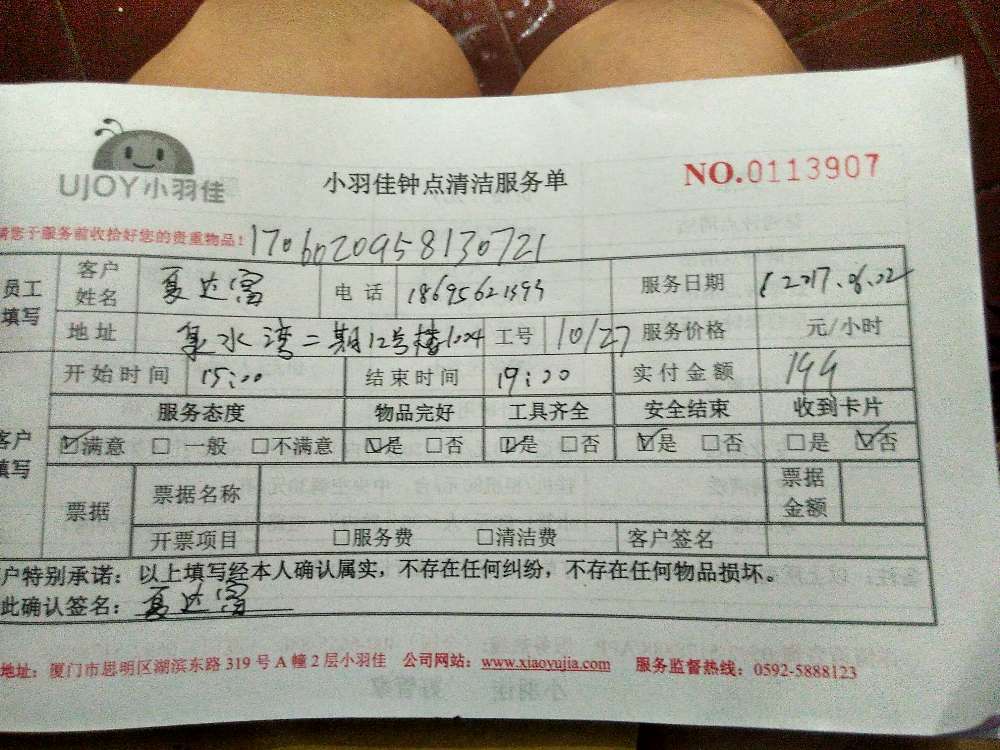 UJOY小羽佳
小羽佳钟点清洁服务单
NO.0113907
请您于服务前收拾好您的贵重物品!
1706020958130721
员工填写 客户姓名 夏达富 电话 服务日期 2017.06.02
地址 泉水湾二期12号楼1004 工号 10/27 服务价格 元/小时
开始时间 15:00 结束时间 19:00 实付金额 144
服务态度 物品完好 工具齐全 安全结束 收到卡片
客户填写 ☑满意 □一般 □不满意 ☑是 □否 ☑是 □否 ☑是 □否 □是 ☑否
票据 票据名称 票据金额
开票项目 □服务费 □清洁费 客户签名
户特别承诺：以上填写经本人确认属实，不存在任何纠纷，不存在任何物品损坏。
此确认签名：夏达富
地址：厦门市思明区湖滨东路 319 号 A 幢 2 层小羽佳 公司网站：www.xiaoyujia.com 服务监督热线：0592-5888123